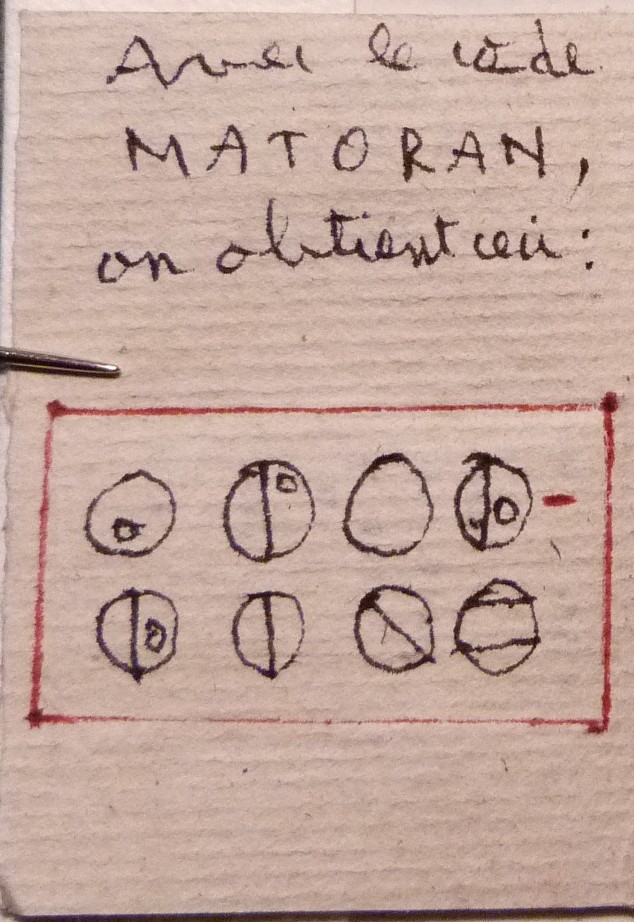 Avec le code
MATORAN,
on obtient ceci :